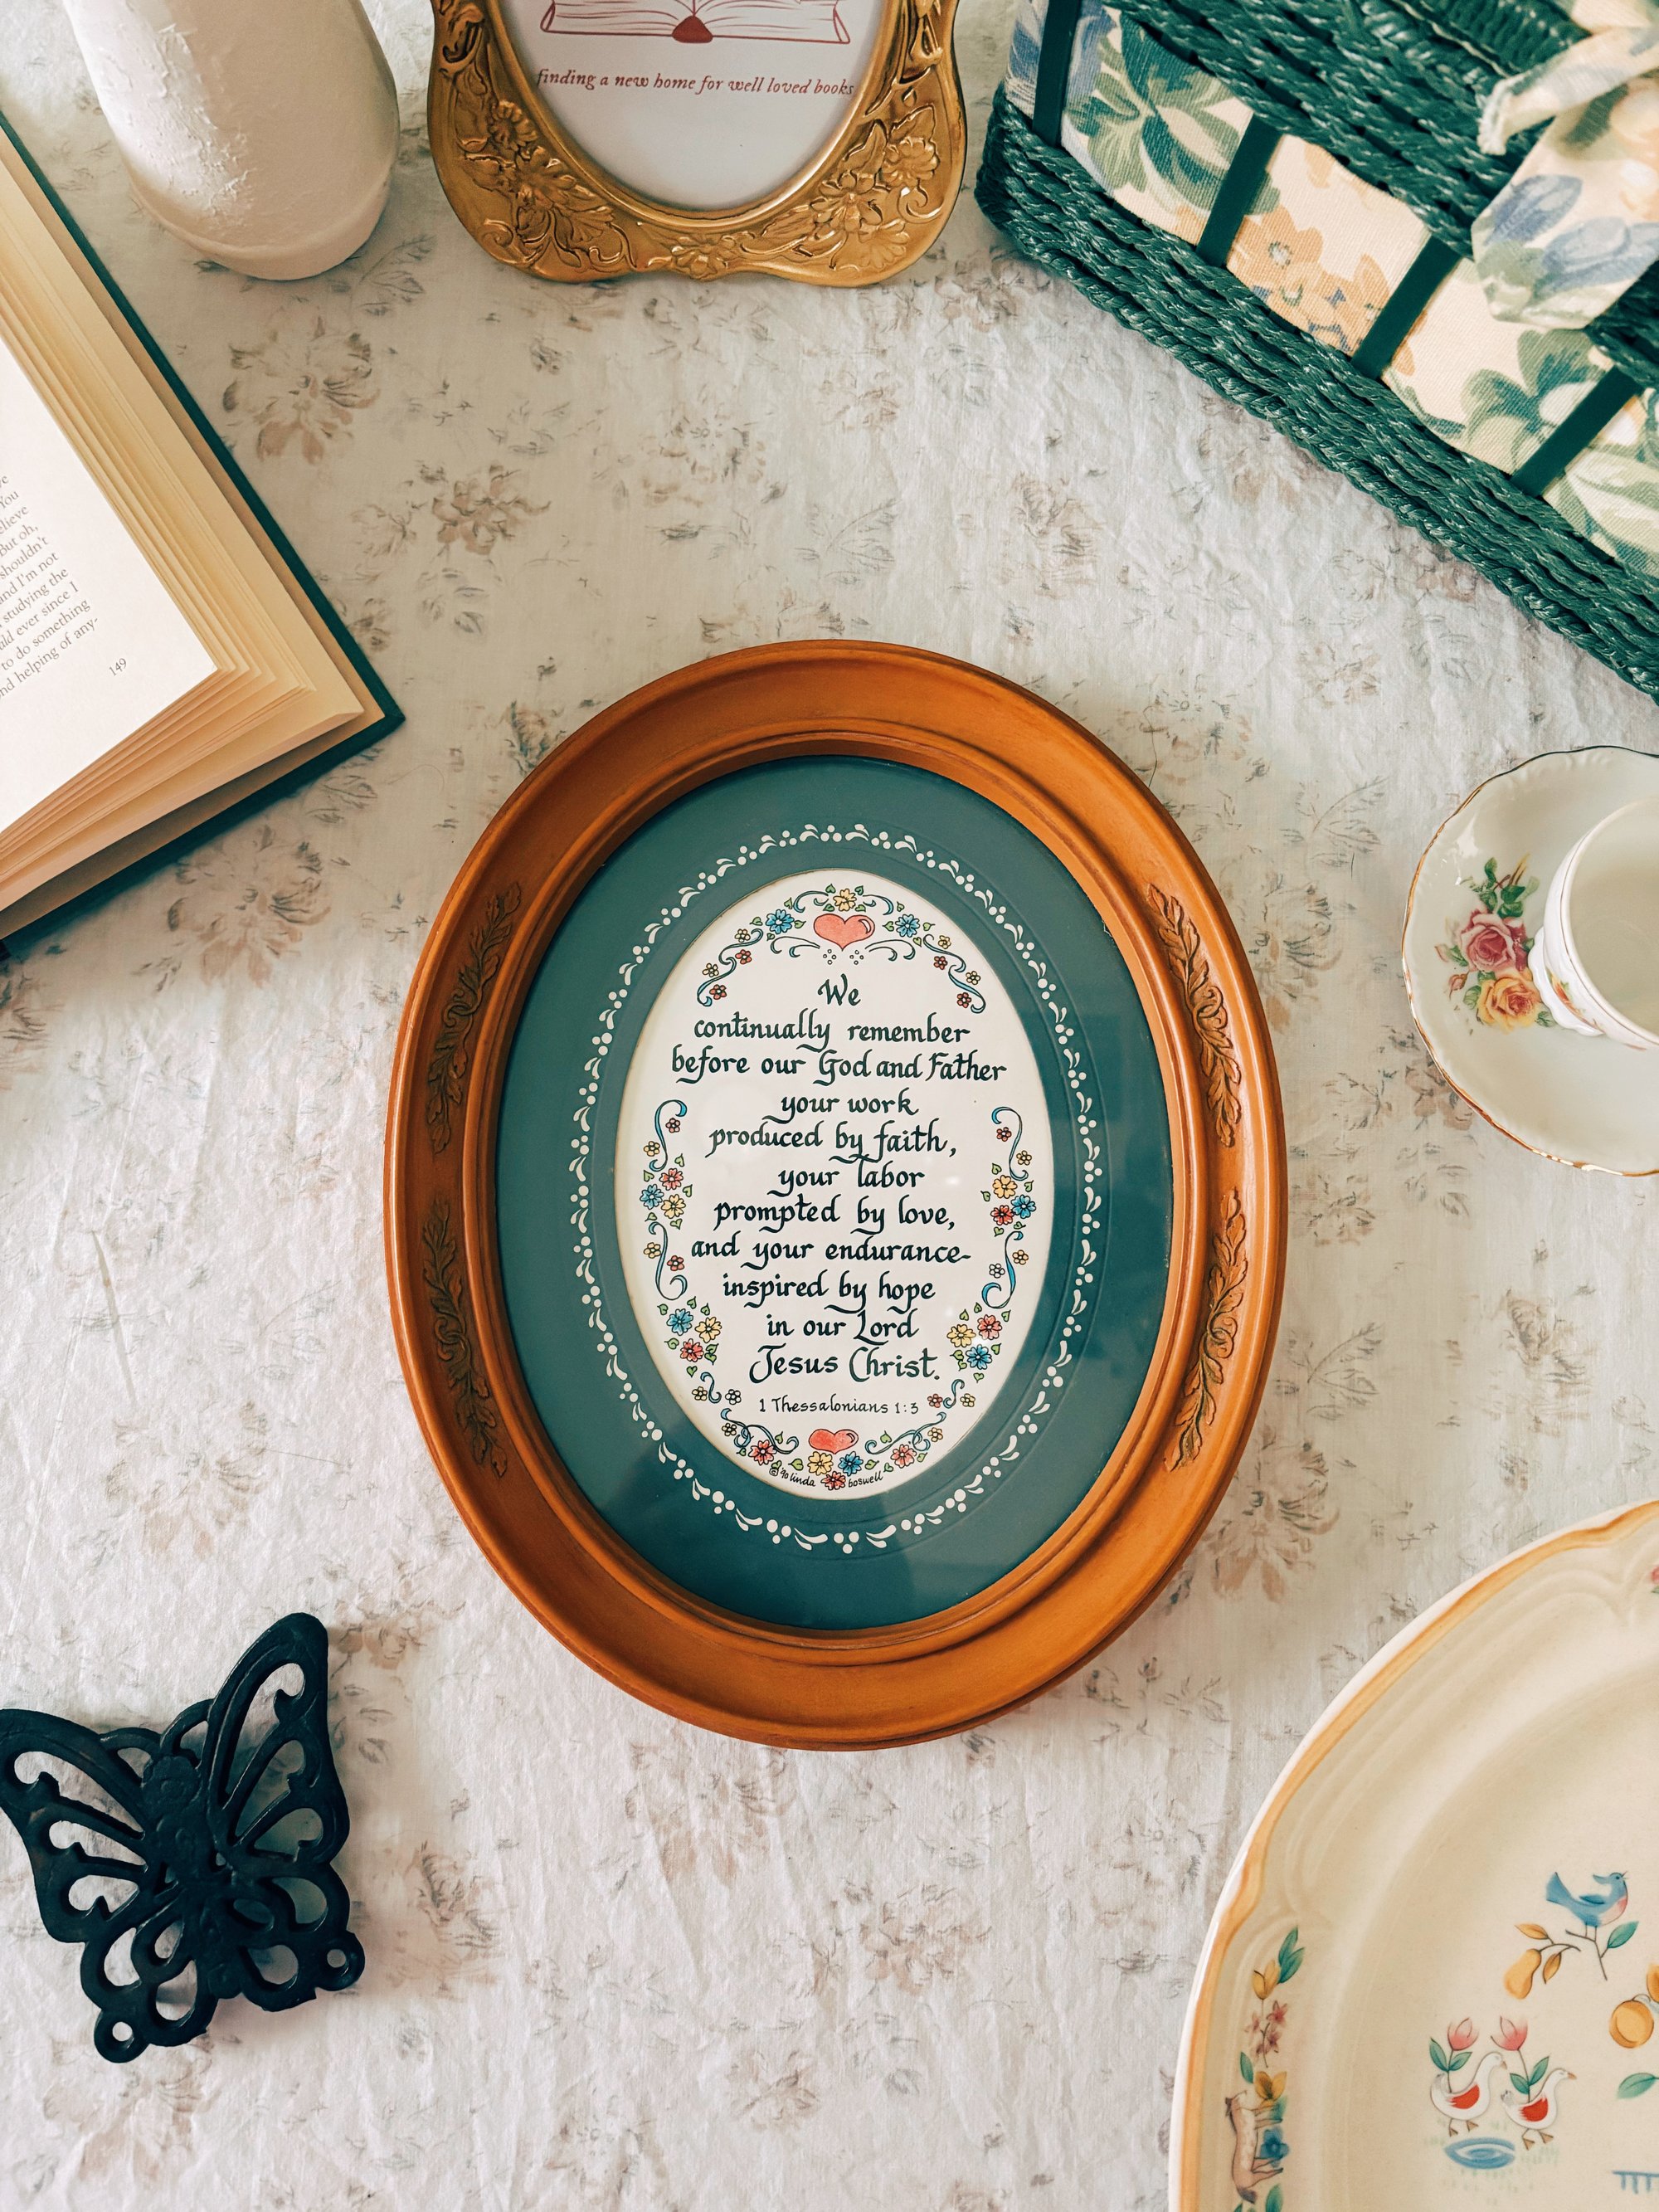 finding a new home for well loved books
You
elieve
But oh,
shouldn't
and I'm not
studying the
ever since I
to do something
helping of any-
149
We
continually remember
before our God and Father
your work
produced by faith,
your labor
prompted by love,
and your endurance
inspired by hope
in our Lord
Jesus Christ.
1 Thessalonians 1:3
linda boswell